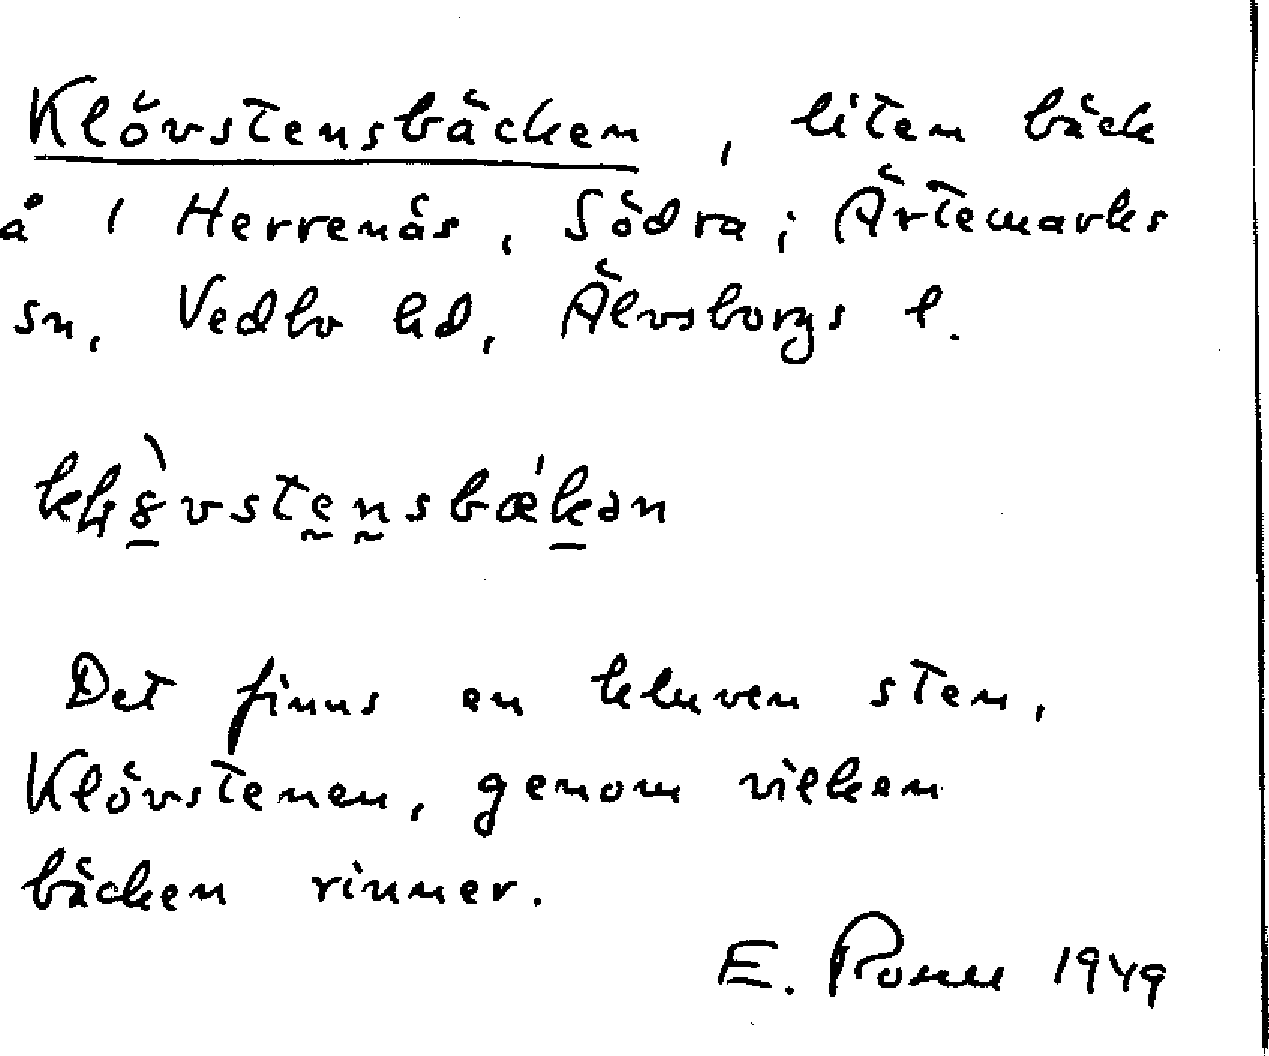 Klövstensbäcken, liten bäck
å 1 Herrenäs, Södra; Ärtemarks
sn, Vedbo hd, Älvsborgs l.
Det finns en kluven sten,
Klövstenen, genom vilken
bäcken rinner.
E. 1949